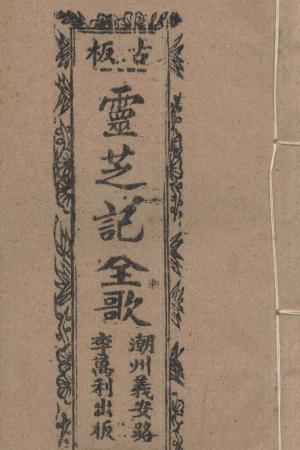 古板
靈芝記全歌
潮州義安路
李萬利出板